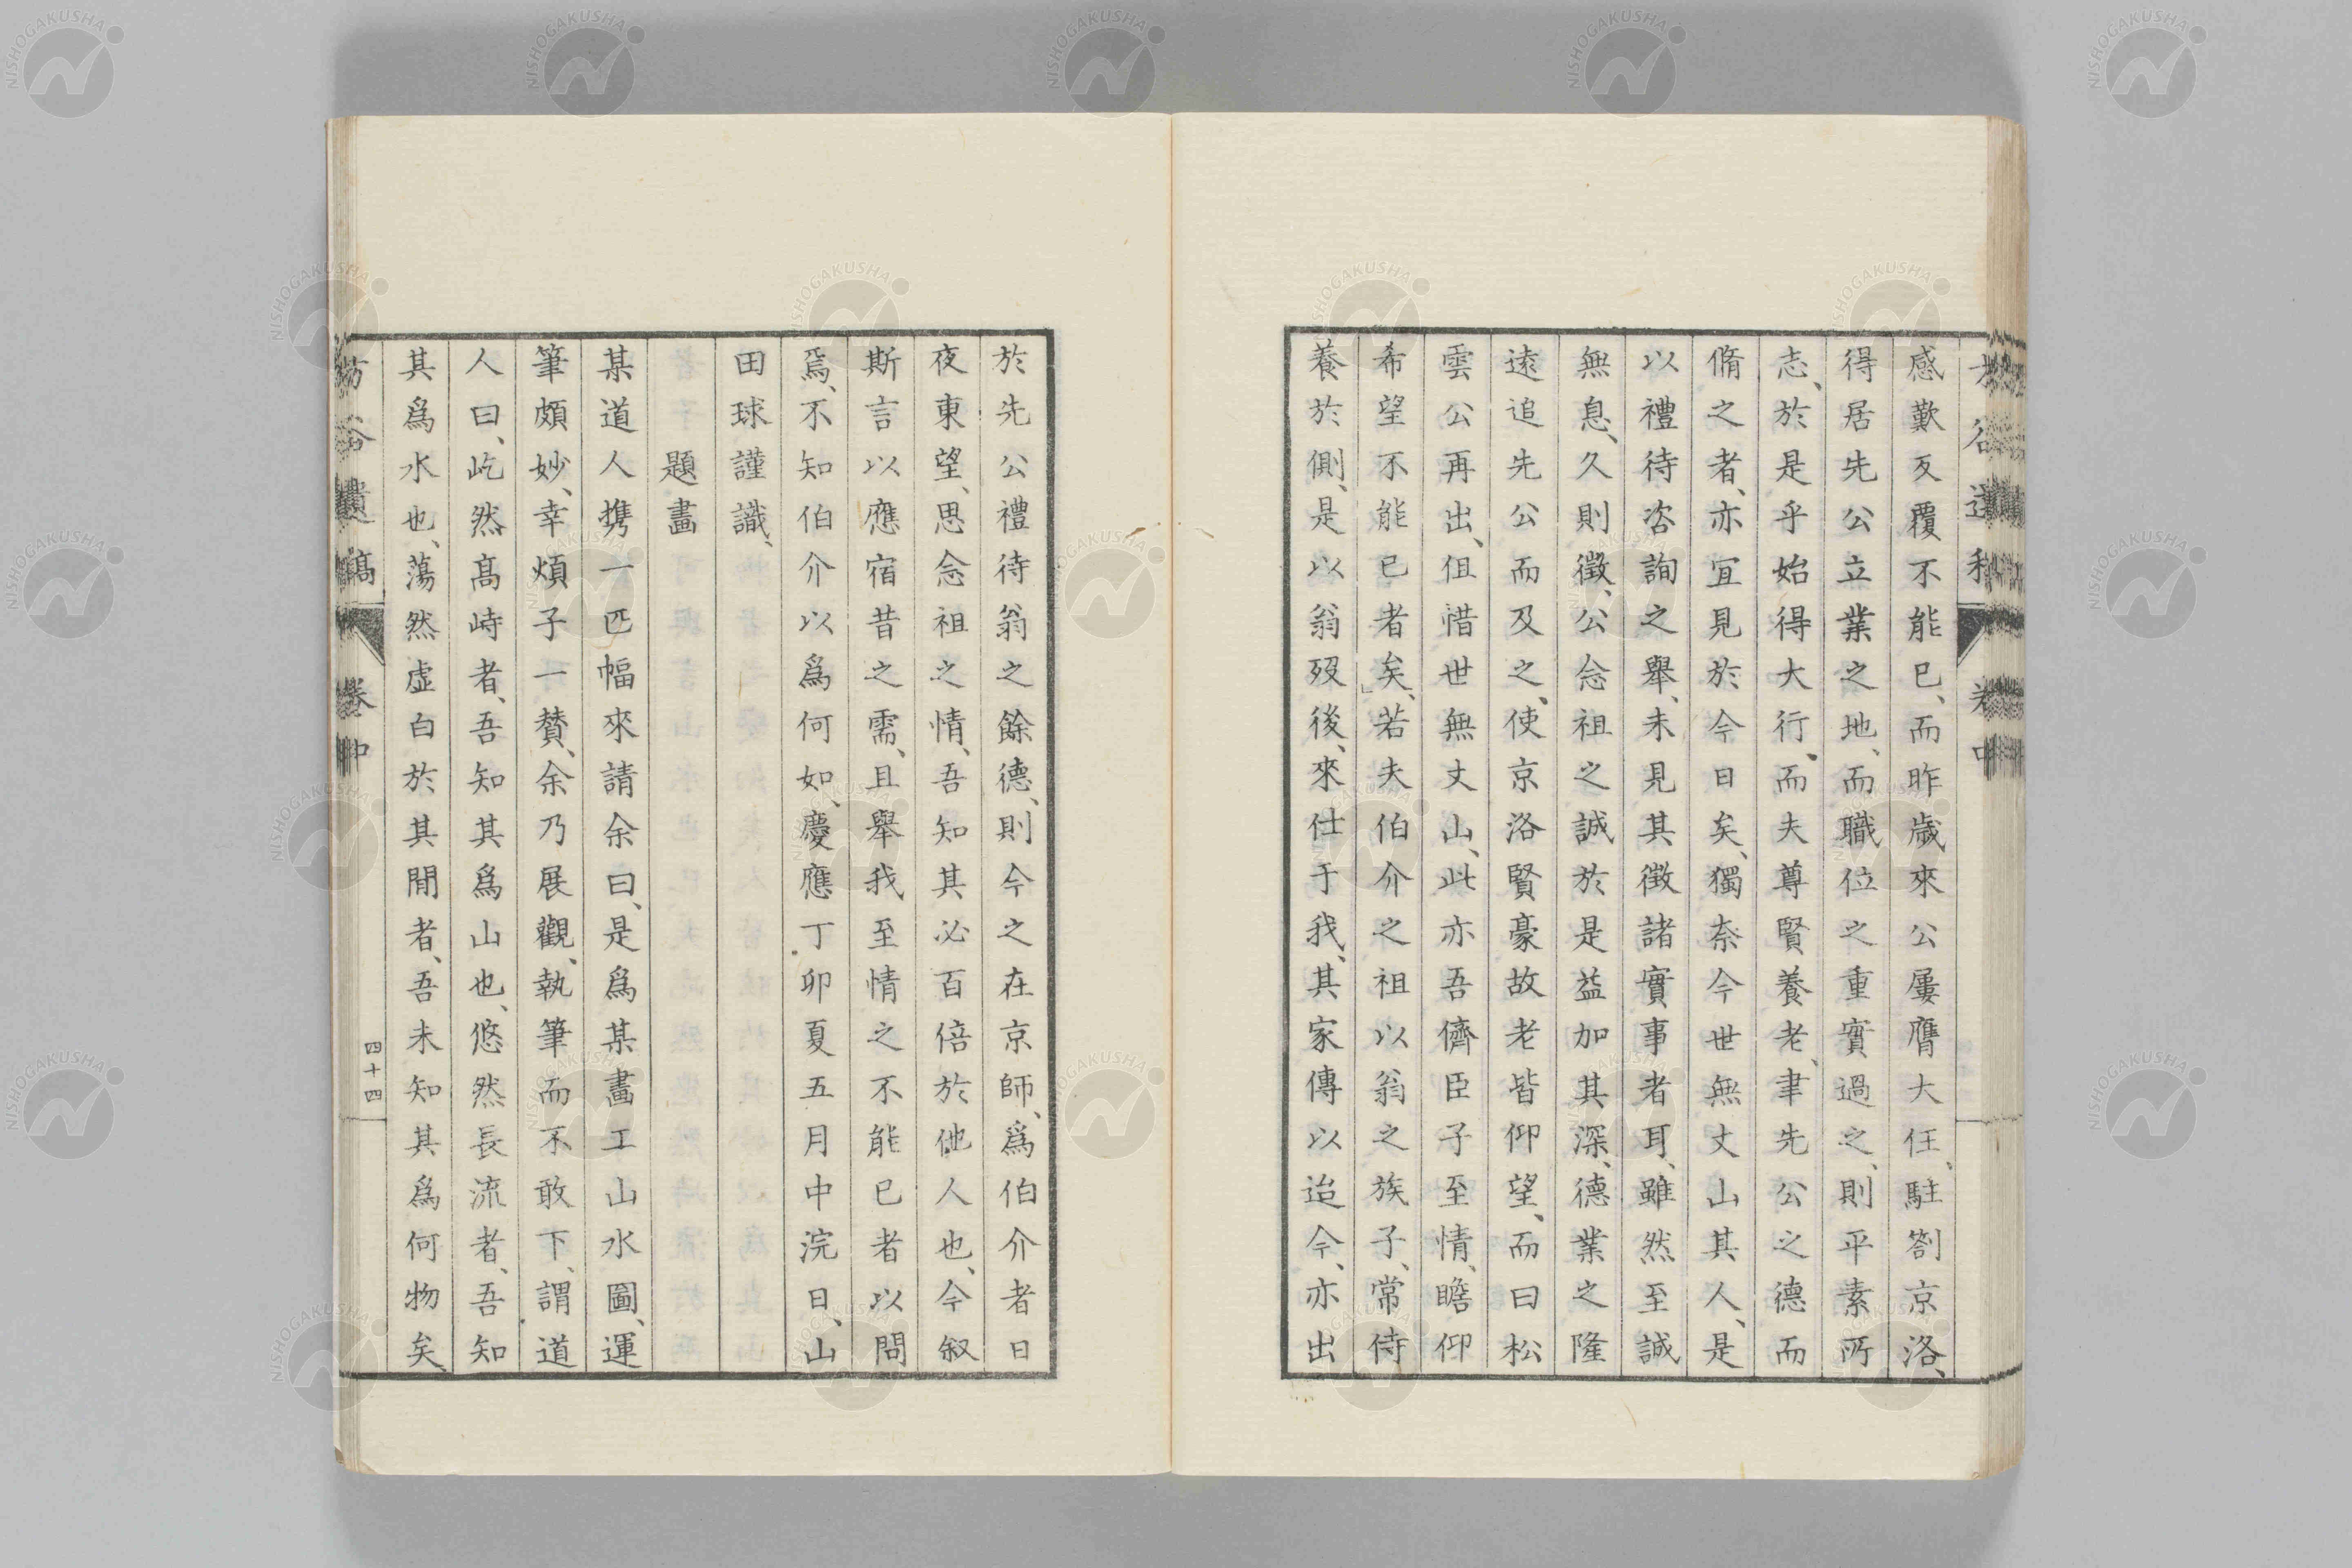 感歎反覆不能已、而昨歳來公屢膺大任、駐劄京洛、
得居先公立業之地、而職位之重實過之、則平素所
志、於是乎始得大行、而夫尊賢養老、聿先公之德而
脩之者、亦宜見於今日矣、獨奈今世無丈山其人、是
以禮待咨詢之舉、未見其徵諸實事者耳、雖然至誠
無息、久則徵、公念祖之誠於是益加其深、德業之隆
遠追先公而及之、使京洛賢豪故老皆仰望、而曰松
雲公再出、但惜世無丈山、此亦吾儕臣子至情、瞻仰
希望不能已者矣、若夫伯介之祖以翁之族子、常侍
養於側、是以翁歿後、來仕于我、其家傳以迨今、亦出
於先公禮待翁之餘德、則今之在京師、爲伯介者日
夜東望、思念祖之情、吾知其必百倍於他人也、今叙
斯言以應宿昔之需、且舉我至情之不能已者以問
焉、不知伯介以爲何如、慶應丁卯夏五月中浣日、山
田球謹識、
題畫
某道人携一匹幅來請余曰、是爲某畫工山水圖、運
筆頗妙、幸煩子一贊、余乃展觀、執筆而不敢下、謂道
人曰、屹然高峙者、吾知其爲山也、悠然長流者、吾知
其爲水也、蕩然虚白於其間者、吾未知其爲何物矣、
方谷遺稿 卷中
四十四
NISHOGAKUSHA